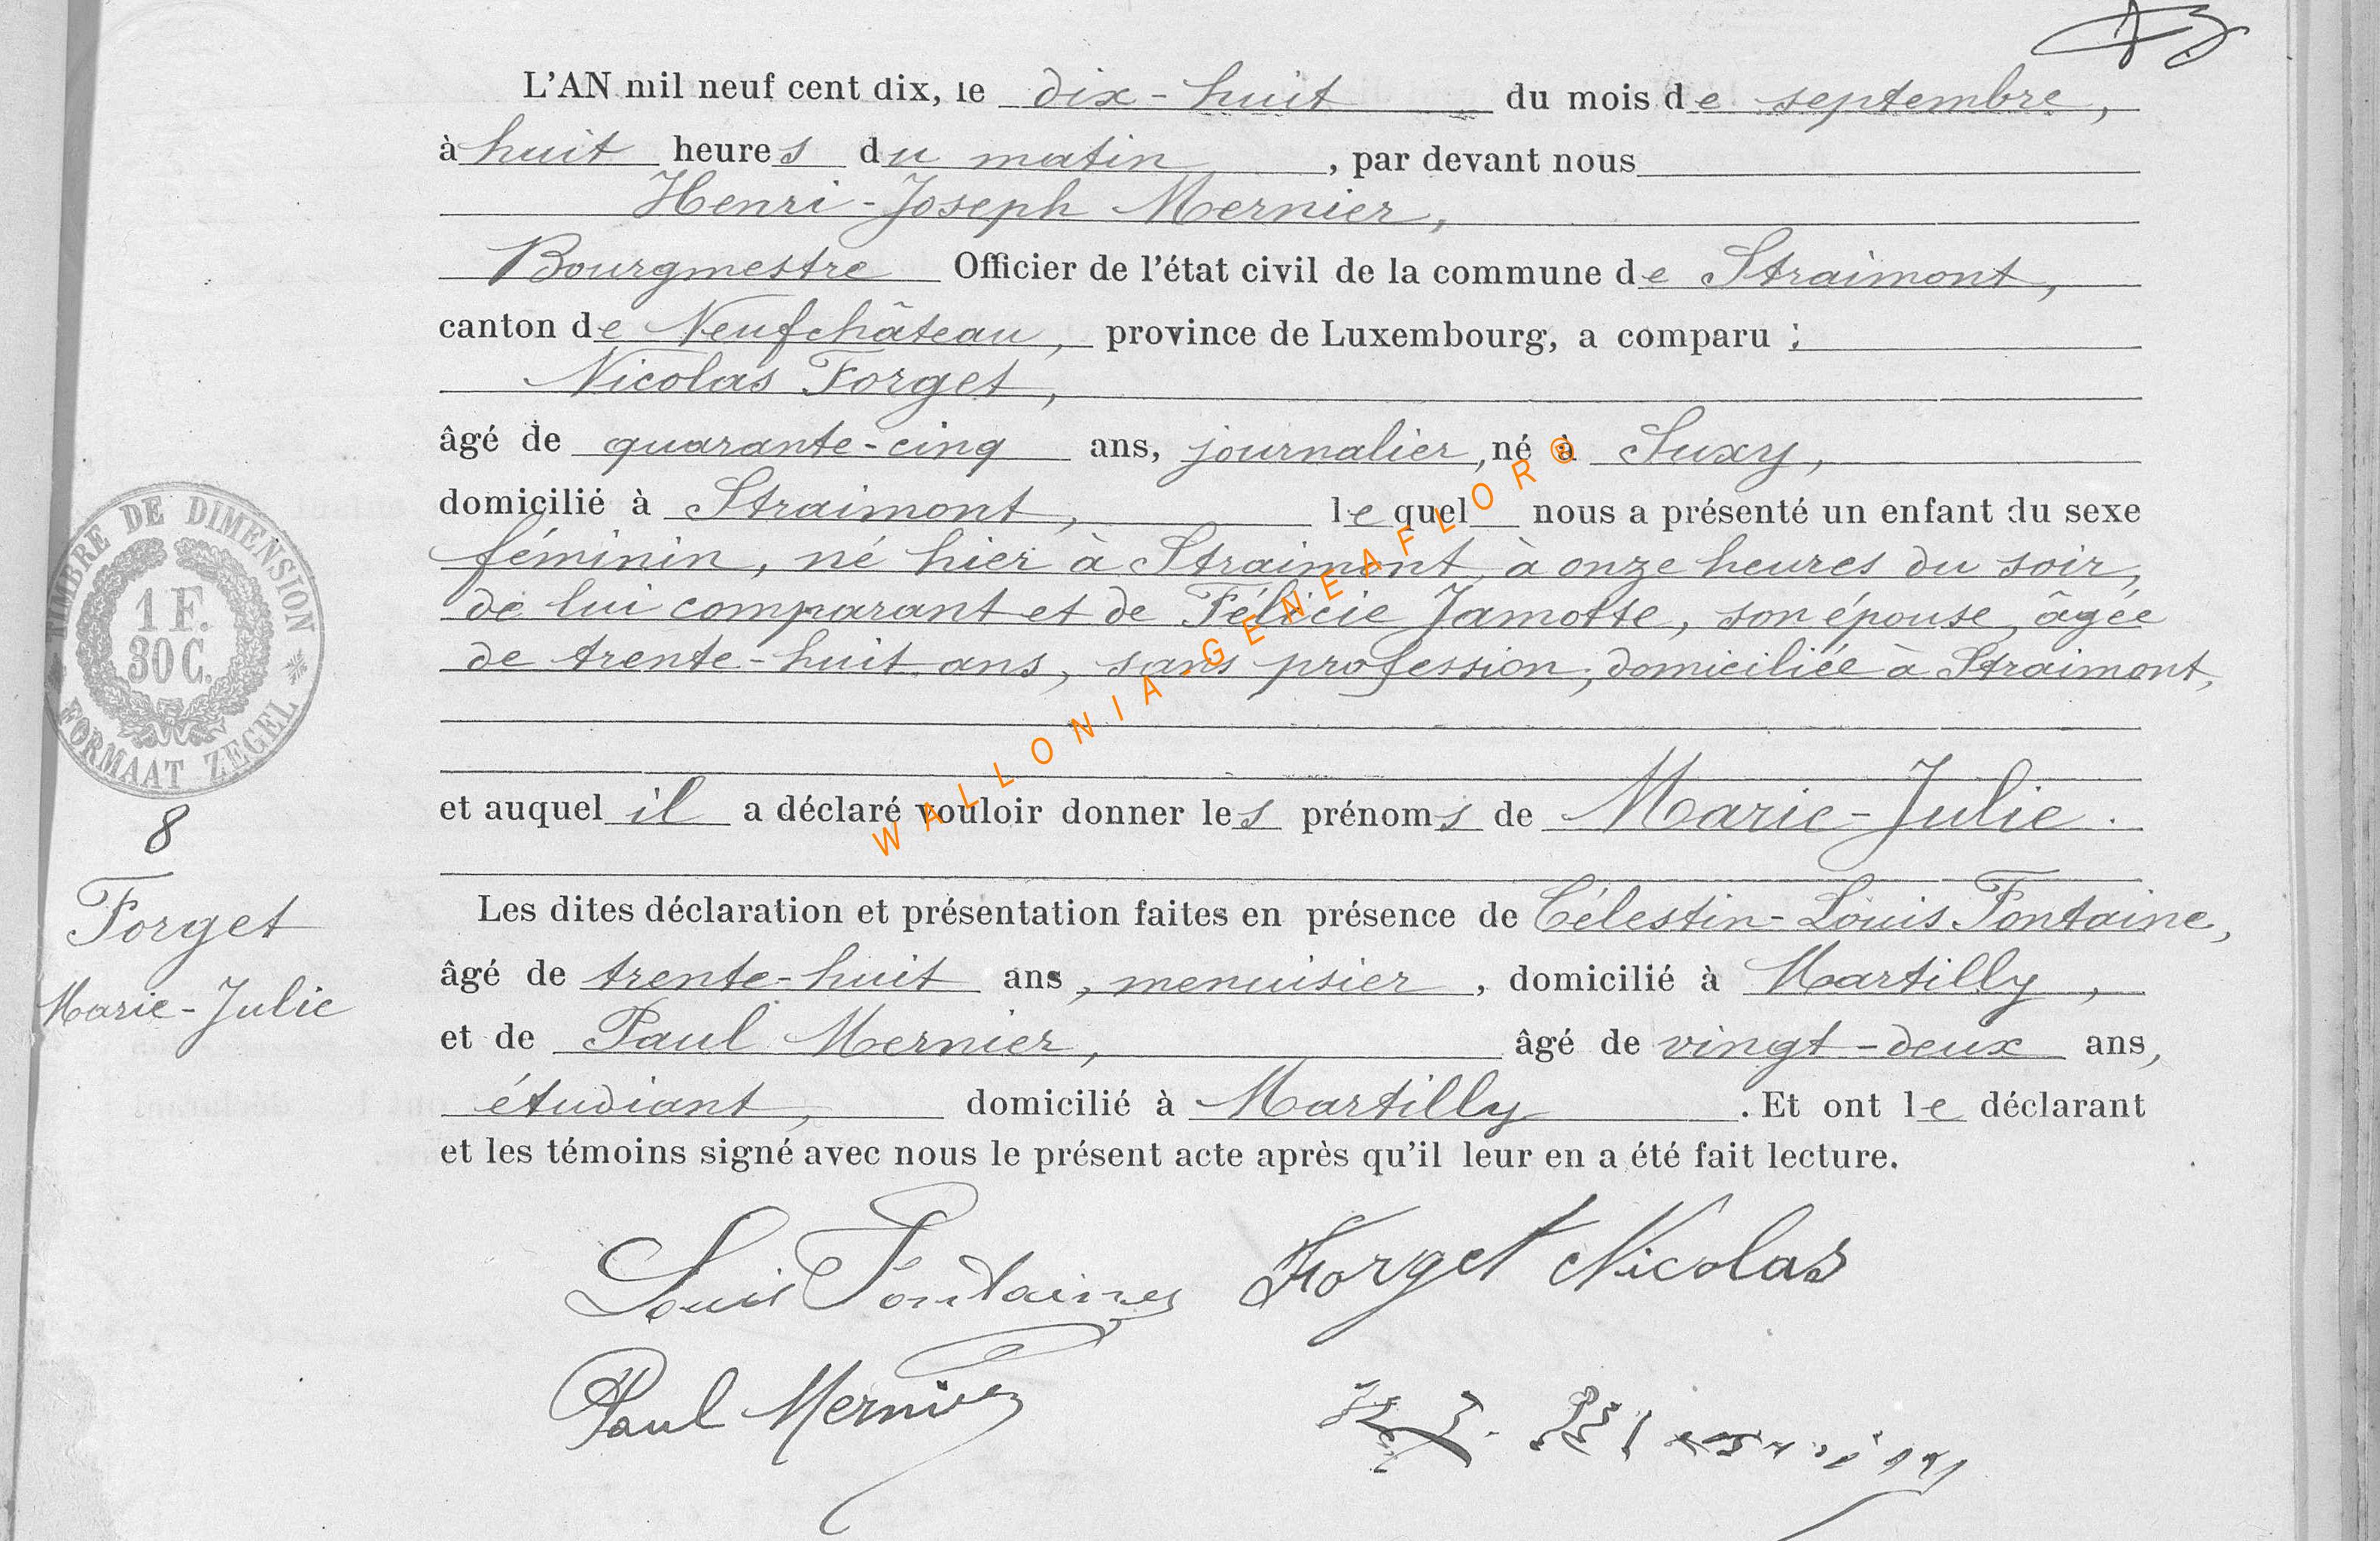 L'AN mil neuf cent dix, le dix-huit du mois de septembre,
à huit heures du matin, par devant nous
Henri-Joseph Mernier,
Bourgmestre Officier de l'état civil de la commune de Straimont,
canton de Neufchâteau, province de Luxembourg, a comparu :
Nicolas Forget,
âgé de quarante-cinq ans, journalier, né à Suxy,
domicilié à Straimont, lequel nous a présenté un enfant du sexe
féminin, né hier à Straimont, à onze heures du soir,
de lui comparant et de Félicie Jamotte, son épouse, âgée
de trente-huit ans, sans profession, domiciliée à Straimont,
et auquel il a déclaré vouloir donner les prénoms de Marie-Julie.
Les dites déclaration et présentation faites en présence de Célestin-Louis Fontaine,
âgé de trente-huit ans, menuisier, domicilié à Martilly,
et de Paul Mernier, âgé de vingt-deux ans,
étudiant, domicilié à Martilly. Et ont le déclarant
et les témoins signé avec nous le présent acte après qu'il leur en a été fait lecture.
Louis Fontaine Forget Nicolas
Paul Mernier H J. Mernier
TIMBRE DE DIMENSION
1 F.
30 C.
FORMAAT ZEGEL
8
Forget
Marie-Julie
WALLONIA-GENEAFLOR®